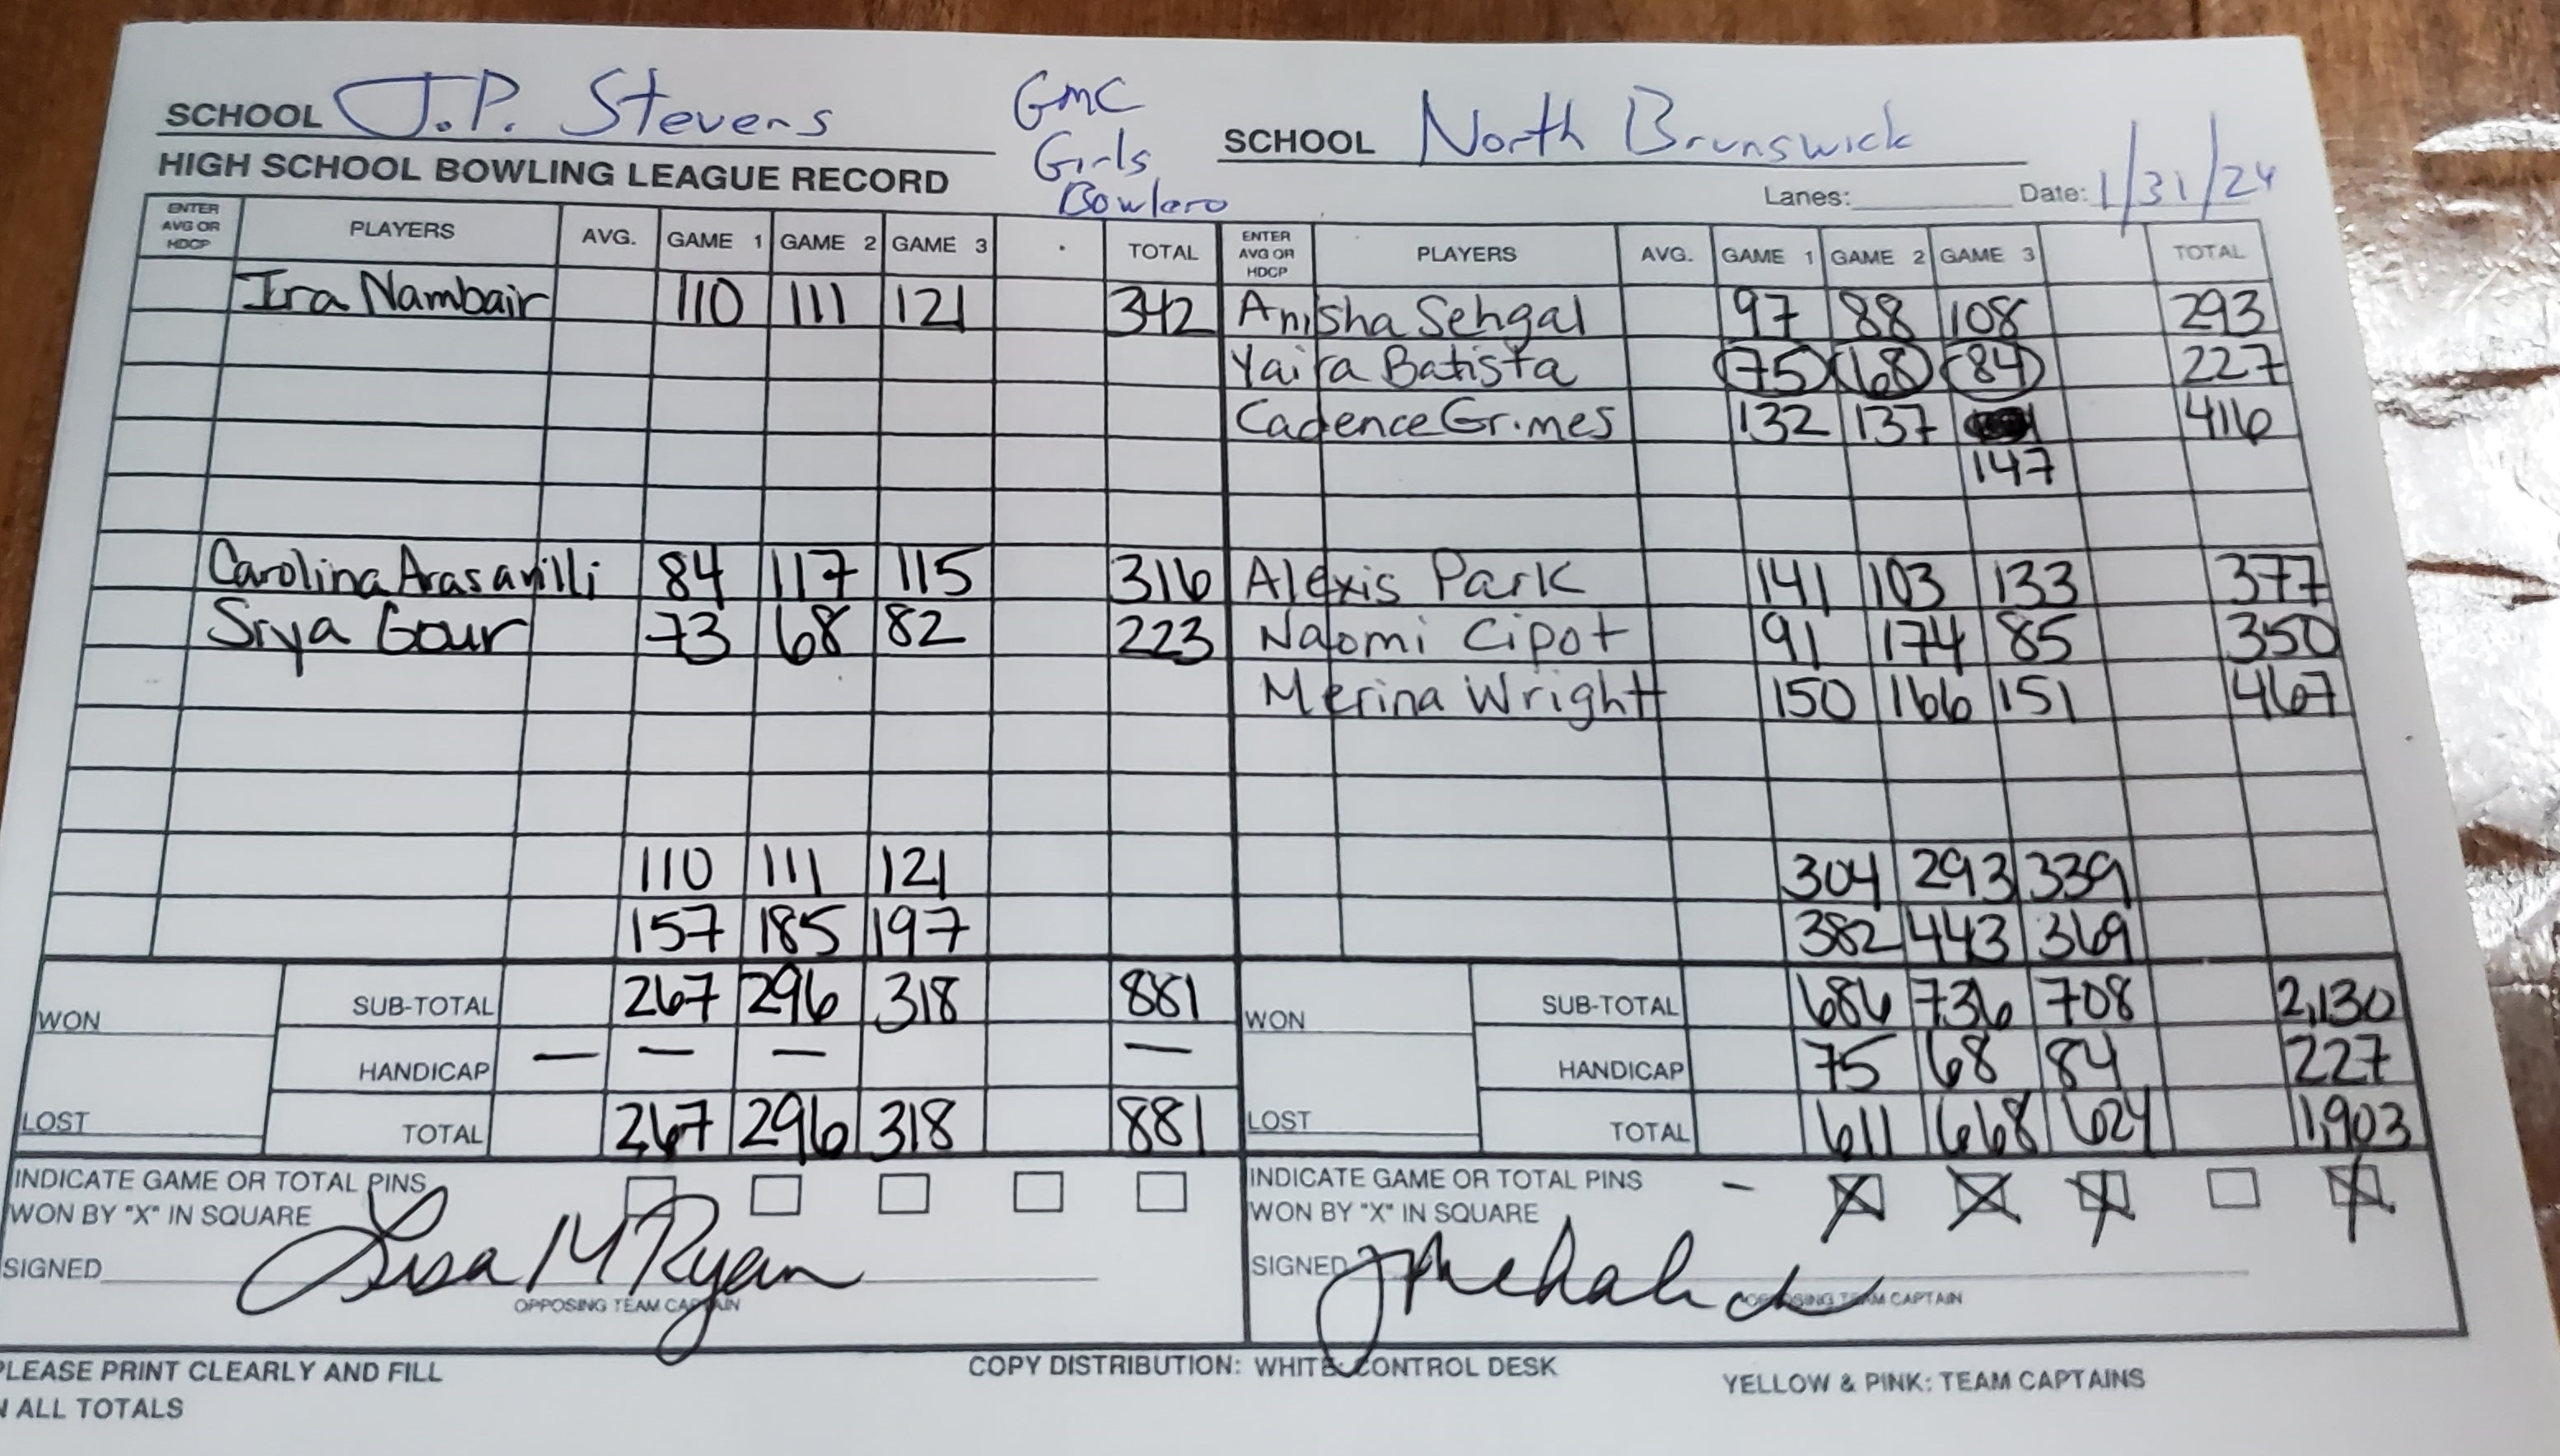 SCHOOL J.P. Stevens
GMC
Girls
Bowlero
SCHOOL North Brunswick
HIGH SCHOOL BOWLING LEAGUE RECORD
Lanes: Date: 1/31/24
ENTER AVG OR HDCP PLAYERS AVG. GAME 1 GAME 2 GAME 3 TOTAL ENTER AVG OR HDCP PLAYERS AVG. GAME 1 GAME 2 GAME 3 TOTAL
Ira Nambair 110 111 121 342 Anisha Sehgal 97 88 108 293
Yaira Batista 75 68 84 227
Cadence Grimes 132 137 416
147
Carolina Arasavilli 84 117 115 316 Alexis Park 141 103 133 377
Siya Gour 73 68 82 223 Naomi Cipot 91 174 85 350
Merina Wright 150 166 151 467
110 111 121 304 293 339
157 185 197 382 443 369
WON SUB-TOTAL 267 296 318 881 WON SUB-TOTAL 686 736 708 2,130
HANDICAP — — — — HANDICAP 75 68 84 227
LOST TOTAL 267 296 318 881 LOST TOTAL 611 668 624 1,903
INDICATE GAME OR TOTAL PINS INDICATE GAME OR TOTAL PINS –
WON BY "X" IN SQUARE WON BY "X" IN SQUARE
SIGNED Lisa M Ryan SIGNED
OPPOSING TEAM CAPTAIN OPPOSING TEAM CAPTAIN
PLEASE PRINT CLEARLY AND FILL COPY DISTRIBUTION: WHITE: CONTROL DESK YELLOW & PINK: TEAM CAPTAINS
N ALL TOTALS